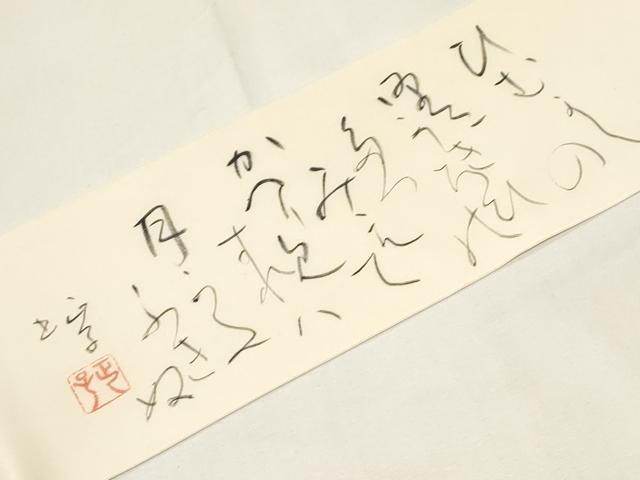 ひむかしの
野にかきろひの
たつ
みえて
かへり
見すれハ
月かたふきぬ